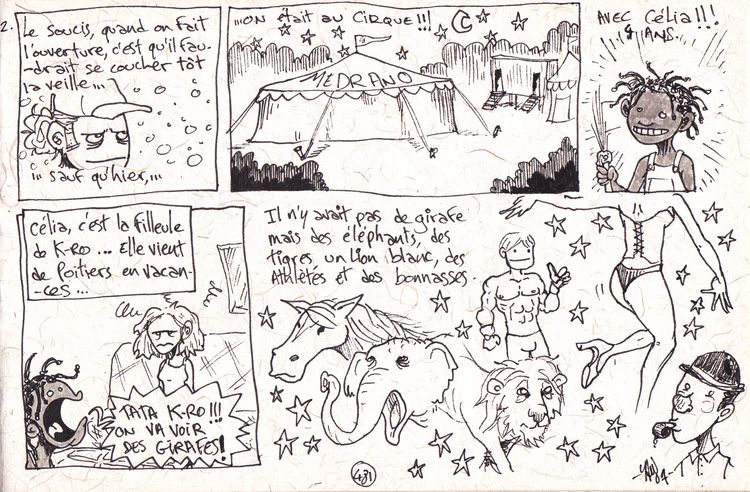 2.
Le soucis, quand on fait
l'ouverture, c'est qu'il fau-
-drait se coucher tôt
la veille...
... sauf qu'hier,...
...ON était AU CIRQUE!!!
MEDRANO
AVEC Célia!!!
8 ANS.
Célia, c'est la filleule
de K-RO... Elle vient
de Poitiers en vacan-
-ces...
TATA K-RO!!!
ON VA VOIR
DES GIRAFES!
Il n'y avait pas de girafe
mais des éléphants, des
tigres, un lion blanc, des
Athlètes et des bonnasses.
481